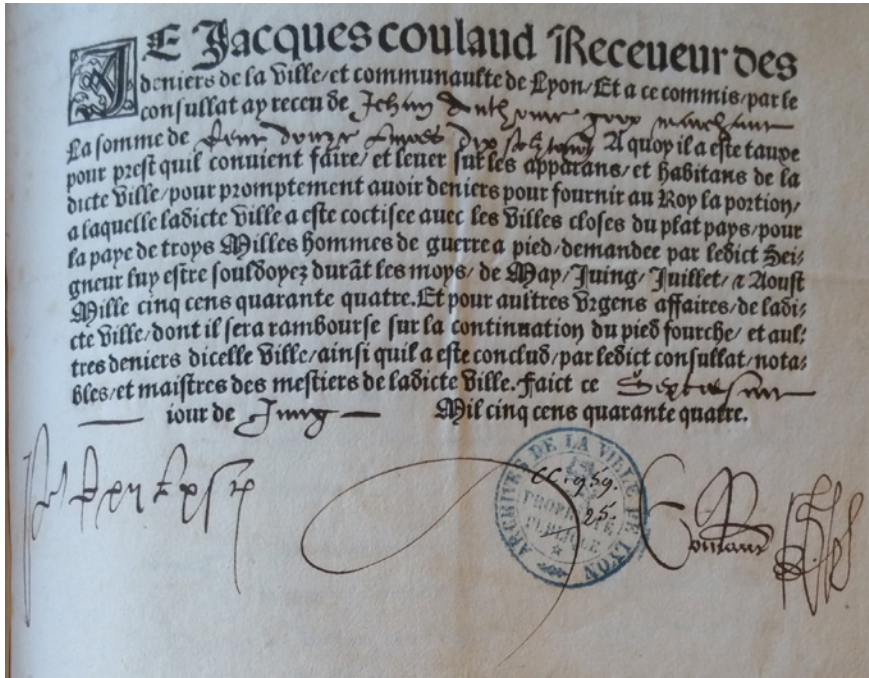 JE Jacques coulaud Receueur des
deniers de la Ville/et communaulte de Lyon/Et a ce commis/par le
consullat ay receu de Jehan Anthoine marchant
La somme de A quoy il a este tauxe
pour prest quil conuient faire/et leuer sur les apparans/et habitans de la
dicte Ville/pour promptement auoir deniers pour fournir au Roy la portion/
a laquelle ladicte ville a este coctisee auec les Villes closes du plat pays/pour
la paye de troys Milles hommes de guerre a pied/demandee par ledict Sei⸗
gneur luy estre souldoyez durāt les moys/de May/Juing/Juillet/⁊ Aoust
Mille cinq cens quarante quatre.Et pour aultres Vrgens affaires/de ladi⸗
cte Ville/dont il sera rambourse sur la continuation du pied fourche/et aul⸗
tres deniers dicelle Ville/ainsi quil a este conclud/par ledict consullat/nota⸗
bles/et maistres des mestiers de ladicte Ville.Faict ce
iour de Juing Mil cinq cens quarante quatre.
ARCHIVES DE LA VILLE DE LYON
PROPRIÉTÉ
PUBLIQUE
CC. 959.
25.
Coulaud